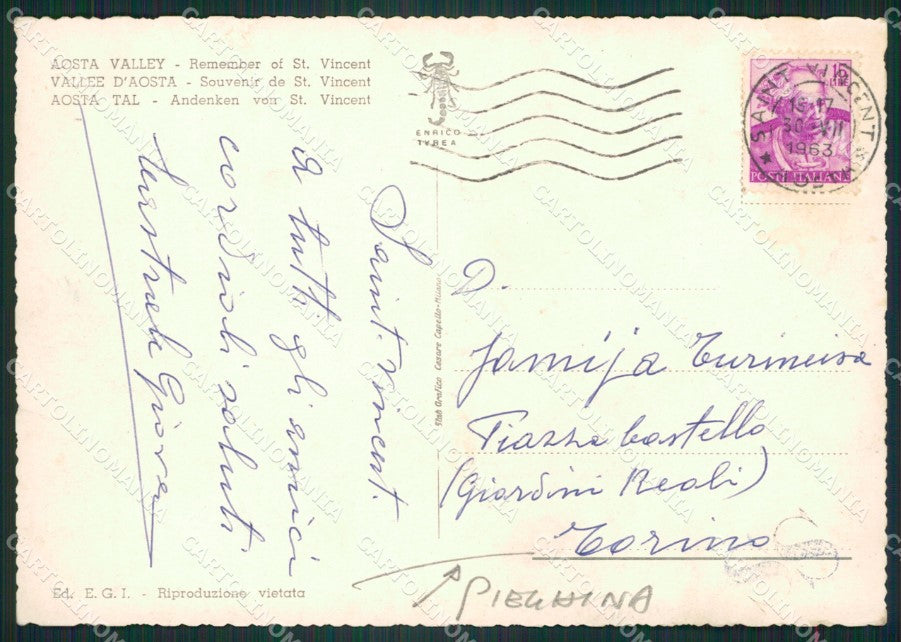 AOSTA VALLEY - Remember of St. Vincent
VALLEE D'AOSTA - Souvenir de St. Vincent
AOSTA TAL - Andenken von St. Vincent
ENRICO
TYREA
15
LIRE
SAINT VINCENT
15-17
30 VII
1963
POSTE ITALIANE
Saint. Vincent.
A tutti gli amici
cordiali saluti
D.
Famija Turineisa
Piazza Castello
(Giardini Reali)
Torino
Stab. Grafico Cesare Capello-Milano
Ed. E. G. I. - Riproduzione vietata
PIEGHINA
CARTOLINOMANIA